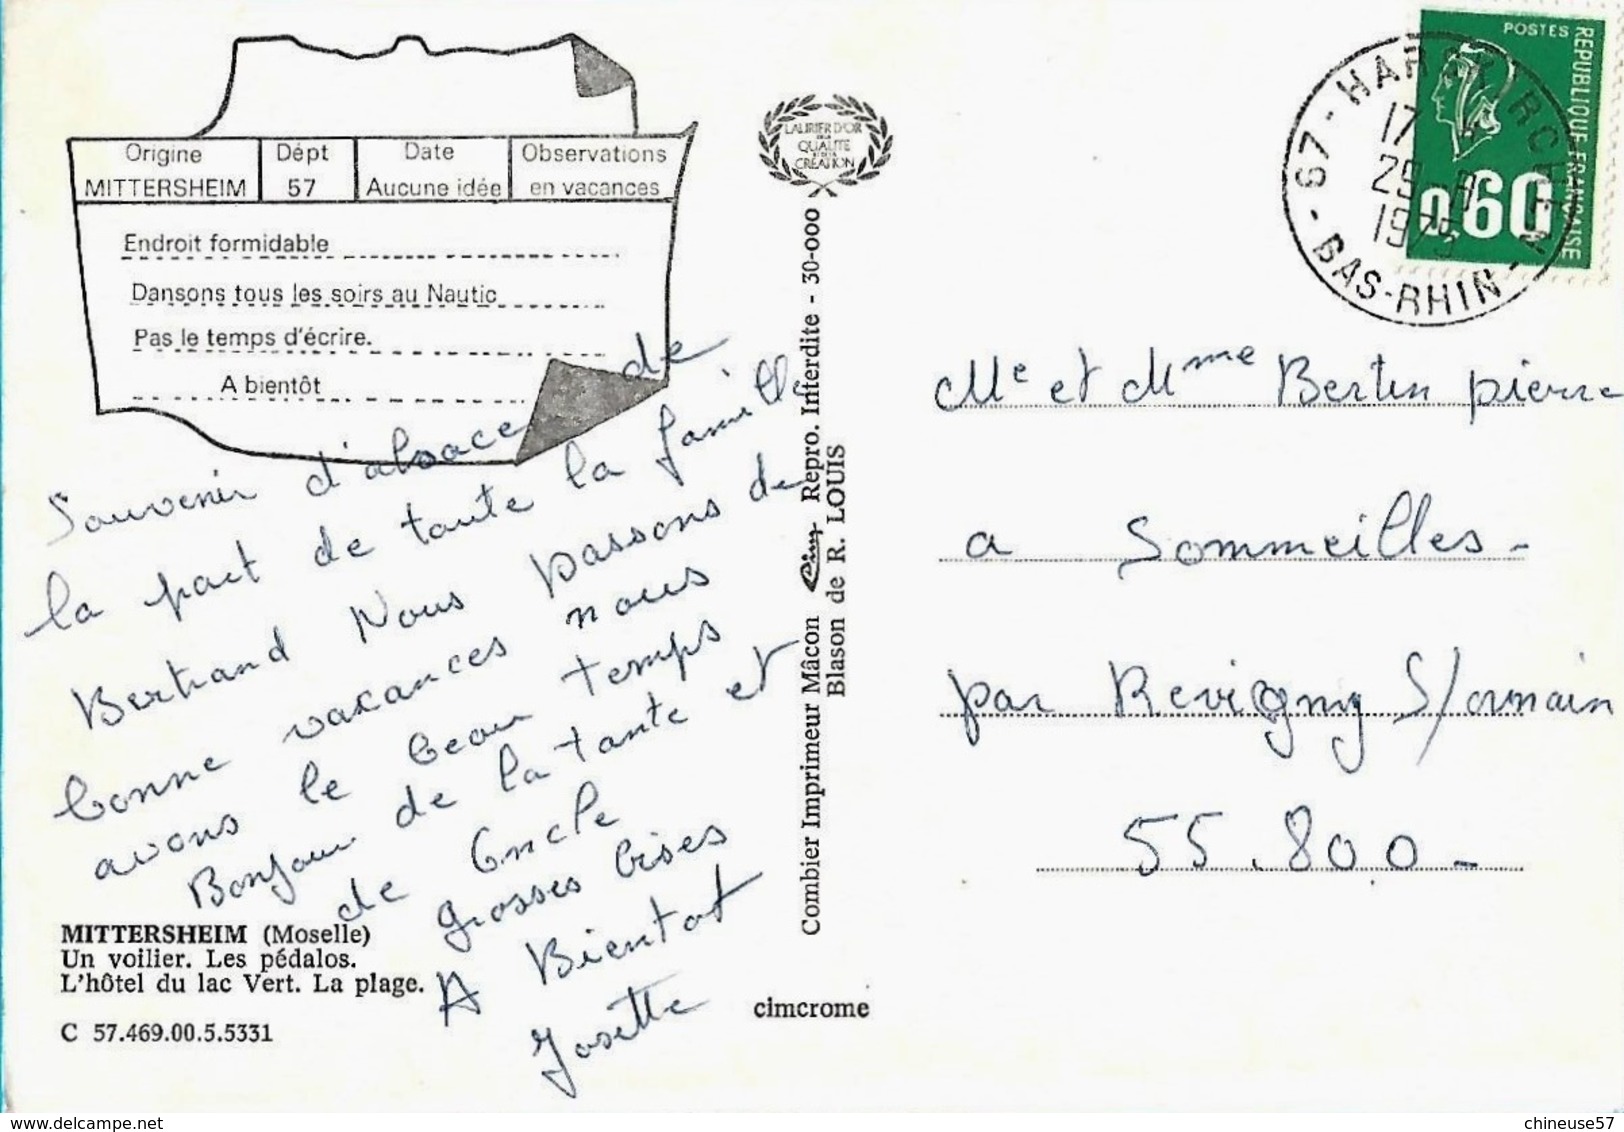 Origine
MITTERSHEIM
Dépt
57
Date
Aucune idée
Observations
en vacances
Endroit formidable
Dansons tous les soirs au Nautic
Pas le temps d'écrire.
A bientôt
Souvenir d'alsace de
la part de toute la famille
Bertrand Nous passons de
bonne vacances nous
avons le beau temps
Bonjour de la tante et
de Oncle
grosses bises
A Bientot
Josette
MITTERSHEIM (Moselle)
Un voilier. Les pédalos.
L'hôtel du lac Vert. La plage.
C 57.469.00.5.5331
cimcrome
LAURIER D'OR
DE LA
QUALITE
ET DE LA
CREATION
Combier Imprimeur Mâcon Cim Repro. Interdite - 30-000
Blason de R. LOUIS
67 - HARSKIRCHEN - BAS-RHIN
17
29
1975
POSTES
REPUBLIQUE FRANÇAISE
0,60
Mr et Mme Bertin pierre
a Sommeilles -
par Revigny S/ornain
55.800 -
chineuse57